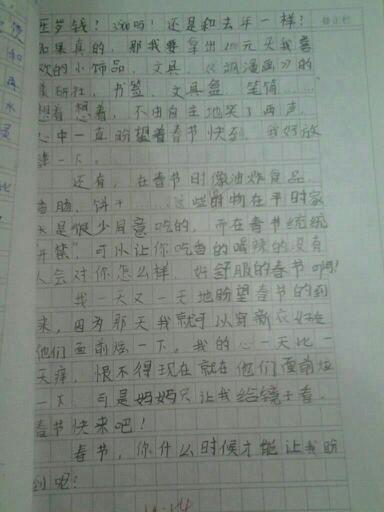 压岁钱！3000吗！还是和去年一样！
如果真的，那我要拿出100元买我喜
欢的小饰品、文具、《漫画》的
书签、文具盒、笔筒……
想着想着，不由自主地笑了两声，
心中一直盼望着春节快到，我好放
一下。
还有，在春节时像油炸食品、
香肠、饼干……这些食物在平时家
是很少同意吃的，而在春节统统
“开禁”，可以让你吃香的喝辣的没有
人会对你怎么样，好舒服的春节啊！
我一天又一天地盼望春节的到
来，因为那天我就可以穿新衣好在
他们面前炫一下，我的心一天比一
天痒，恨不得现在就在他们面前炫
一下，可是妈妈只让我给镜子看，
春节快来吧！
春节，你什么时候才能让我盼
到呢？